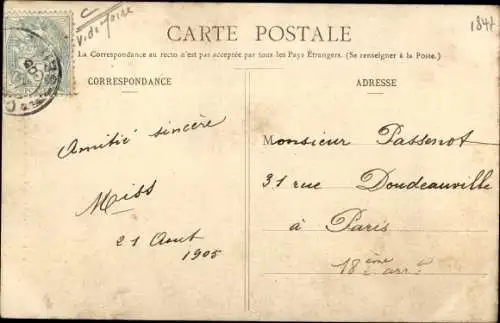 1847
CARTE POSTALE
La Correspondance au recto n'est pas acceptée par tous les Pays Étrangers. (Se renseigner à la Poste.)
CORRESPONDANCE
Amitié sincère
Miss
21 Aout
1905
ADRESSE
Monsieur Passenot
31 rue Doudeauville
à Paris
18ème arrt